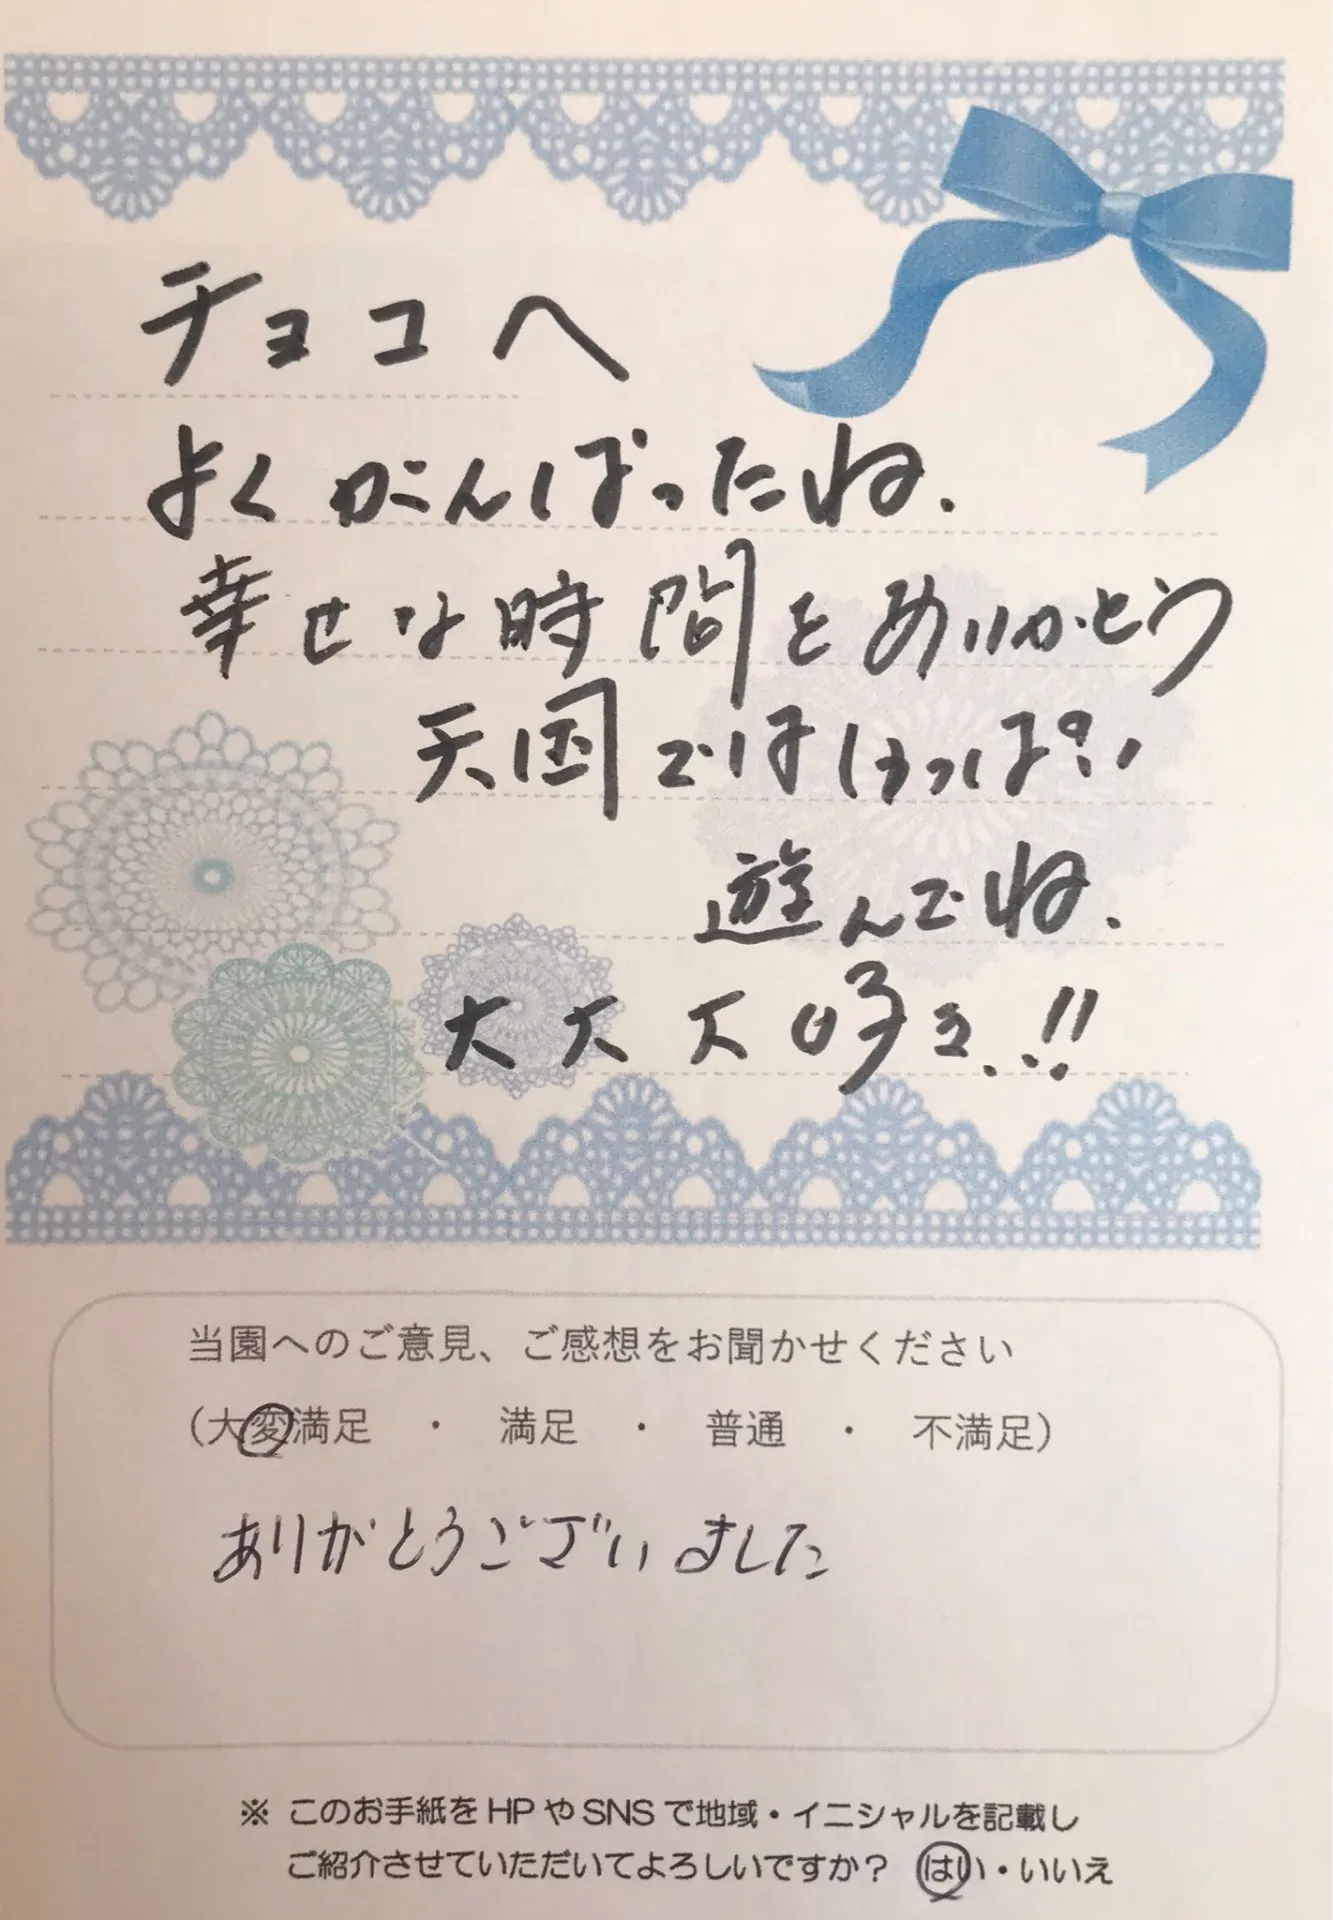 チョコへ
よくがんばったね.
幸せな時間をありがとう
天国ではいっぱい
遊んでね.
大大大好き.!!
当園へのご意見、ご感想をお聞かせください
(大変満足 ・ 満足 ・ 普通 ・ 不満足)
ありがとうございました
※ このお手紙をHPやSNSで地域・イニシャルを記載し
ご紹介させていただいてよろしいですか? はい・いいえ